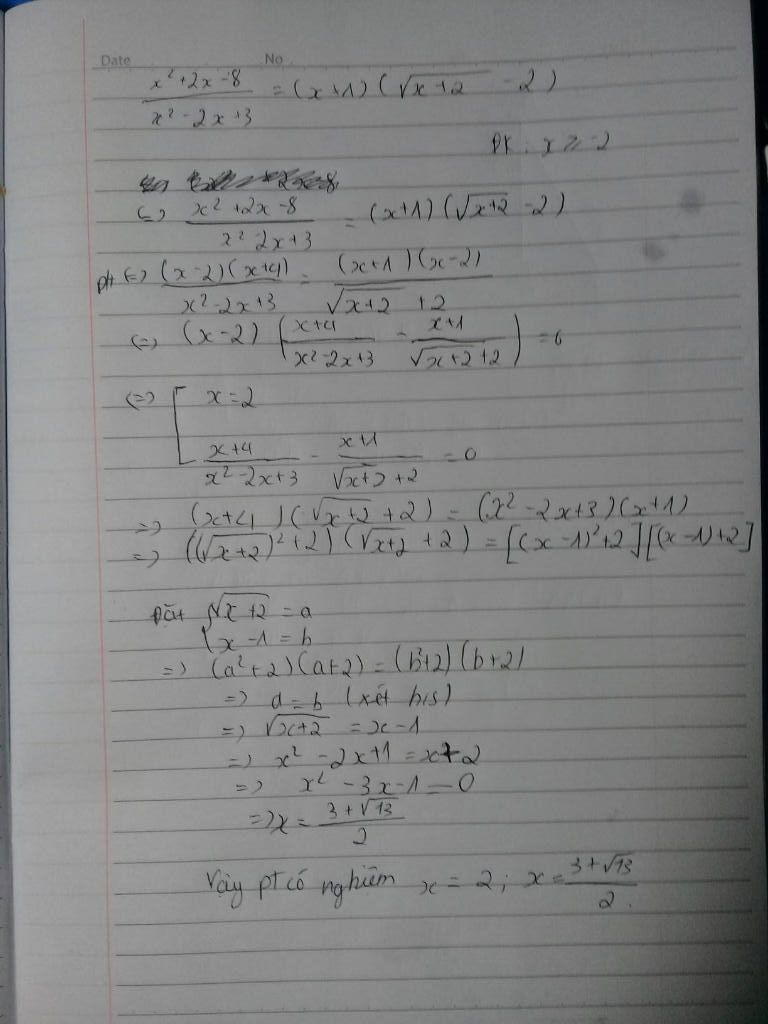 Date No
(x²+2x-8)/(x²-2x+3) = (x+1)(√(x+2) - 2)
ĐK: x ≥ -2
<=> (x²+2x-8)/(x²-2x+3) = (x+1)(√(x+2) - 2)
pt <=> (x-2)(x+4)/(x²-2x+3) = (x+1)(x-2)/(√(x+2) + 2)
<=> (x-2)((x+4)/(x²-2x+3) - (x+1)/(√(x+2)+2)) = 0
<=> [ x = 2
(x+4)/(x²-2x+3) - (x+1)/(√(x+2)+2) = 0
=> (x+4)(√(x+2) + 2) = (x²-2x+3)(x+1)
=> ((√(x+2))²+2)(√(x+2) + 2) = [(x-1)²+2][(x-1)+2]
Đặt { √(x+2) = a
x - 1 = b
=> (a²+2)(a+2) = (b²+2)(b+2)
=> a = b (xét hàm số)
=> √(x+2) = x-1
=> x² - 2x+1 = x+2
=> x² - 3x - 1 = 0
=> x = (3+√13)/2
Vậy pt có nghiệm x = 2; x = (3+√13)/2.